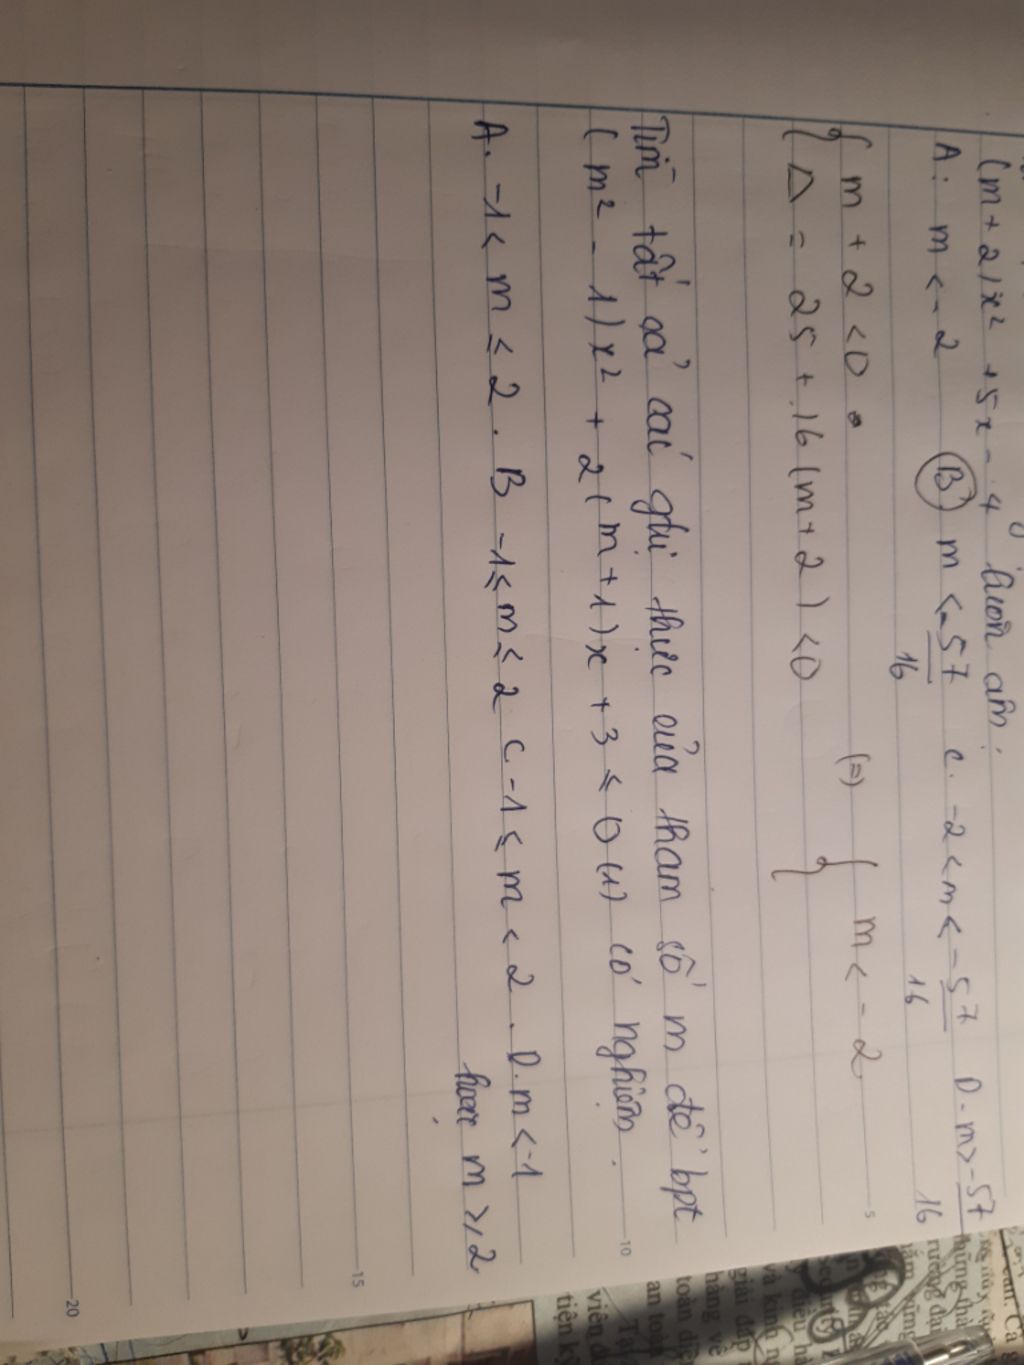 (m + 2)x² + 5x - 4 luôn âm:
A. m < -2 B m < -57/16 C. -2 < m < -57/16 D. m > -57/16
{ m + 2 < 0 (=) { m < -2
{ Δ = 25 + 16 (m + 2) < 0
Tìm tất cả các ghị thực của tham số m để bpt
(m² - 1)x² + 2(m + 1)x + 3 ≤ 0 (1) có nghiệm.
A. -1 < m ≤ 2. B -1 ≤ m ≤ 2 C -1 ≤ m < 2. D. m < -1
hoặc m ≥ 2
5
10
15
20